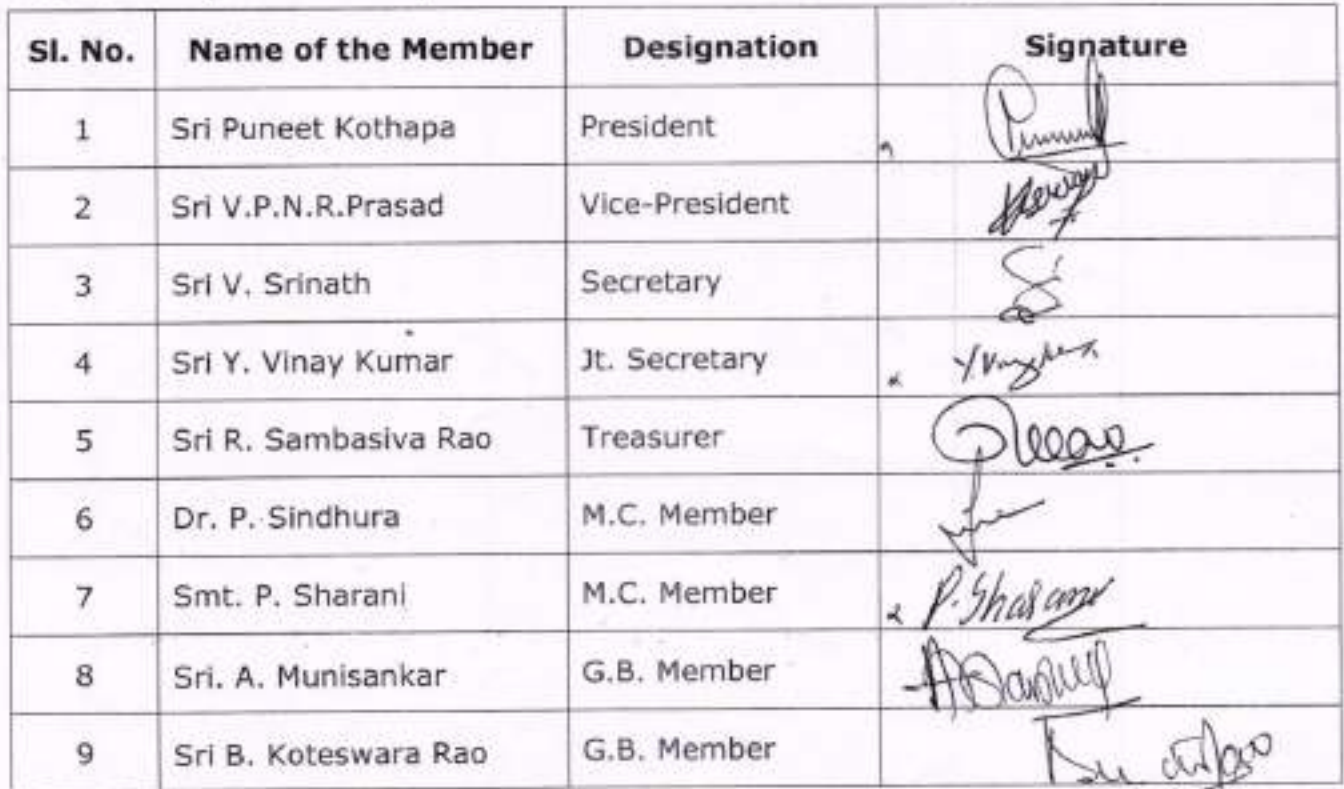 Sl. No. Name of the Member Designation Signature
1 Sri Puneet Kothapa President
2 Sri V.P.N.R.Prasad Vice-President
3 Sri V. Srinath Secretary
4 Sri Y. Vinay Kumar Jt. Secretary
5 Sri R. Sambasiva Rao Treasurer
6 Dr. P. Sindhura M.C. Member
7 Smt. P. Sharani M.C. Member P. Sharani
8 Sri. A. Munisankar G.B. Member
9 Sri B. Koteswara Rao G.B. Member